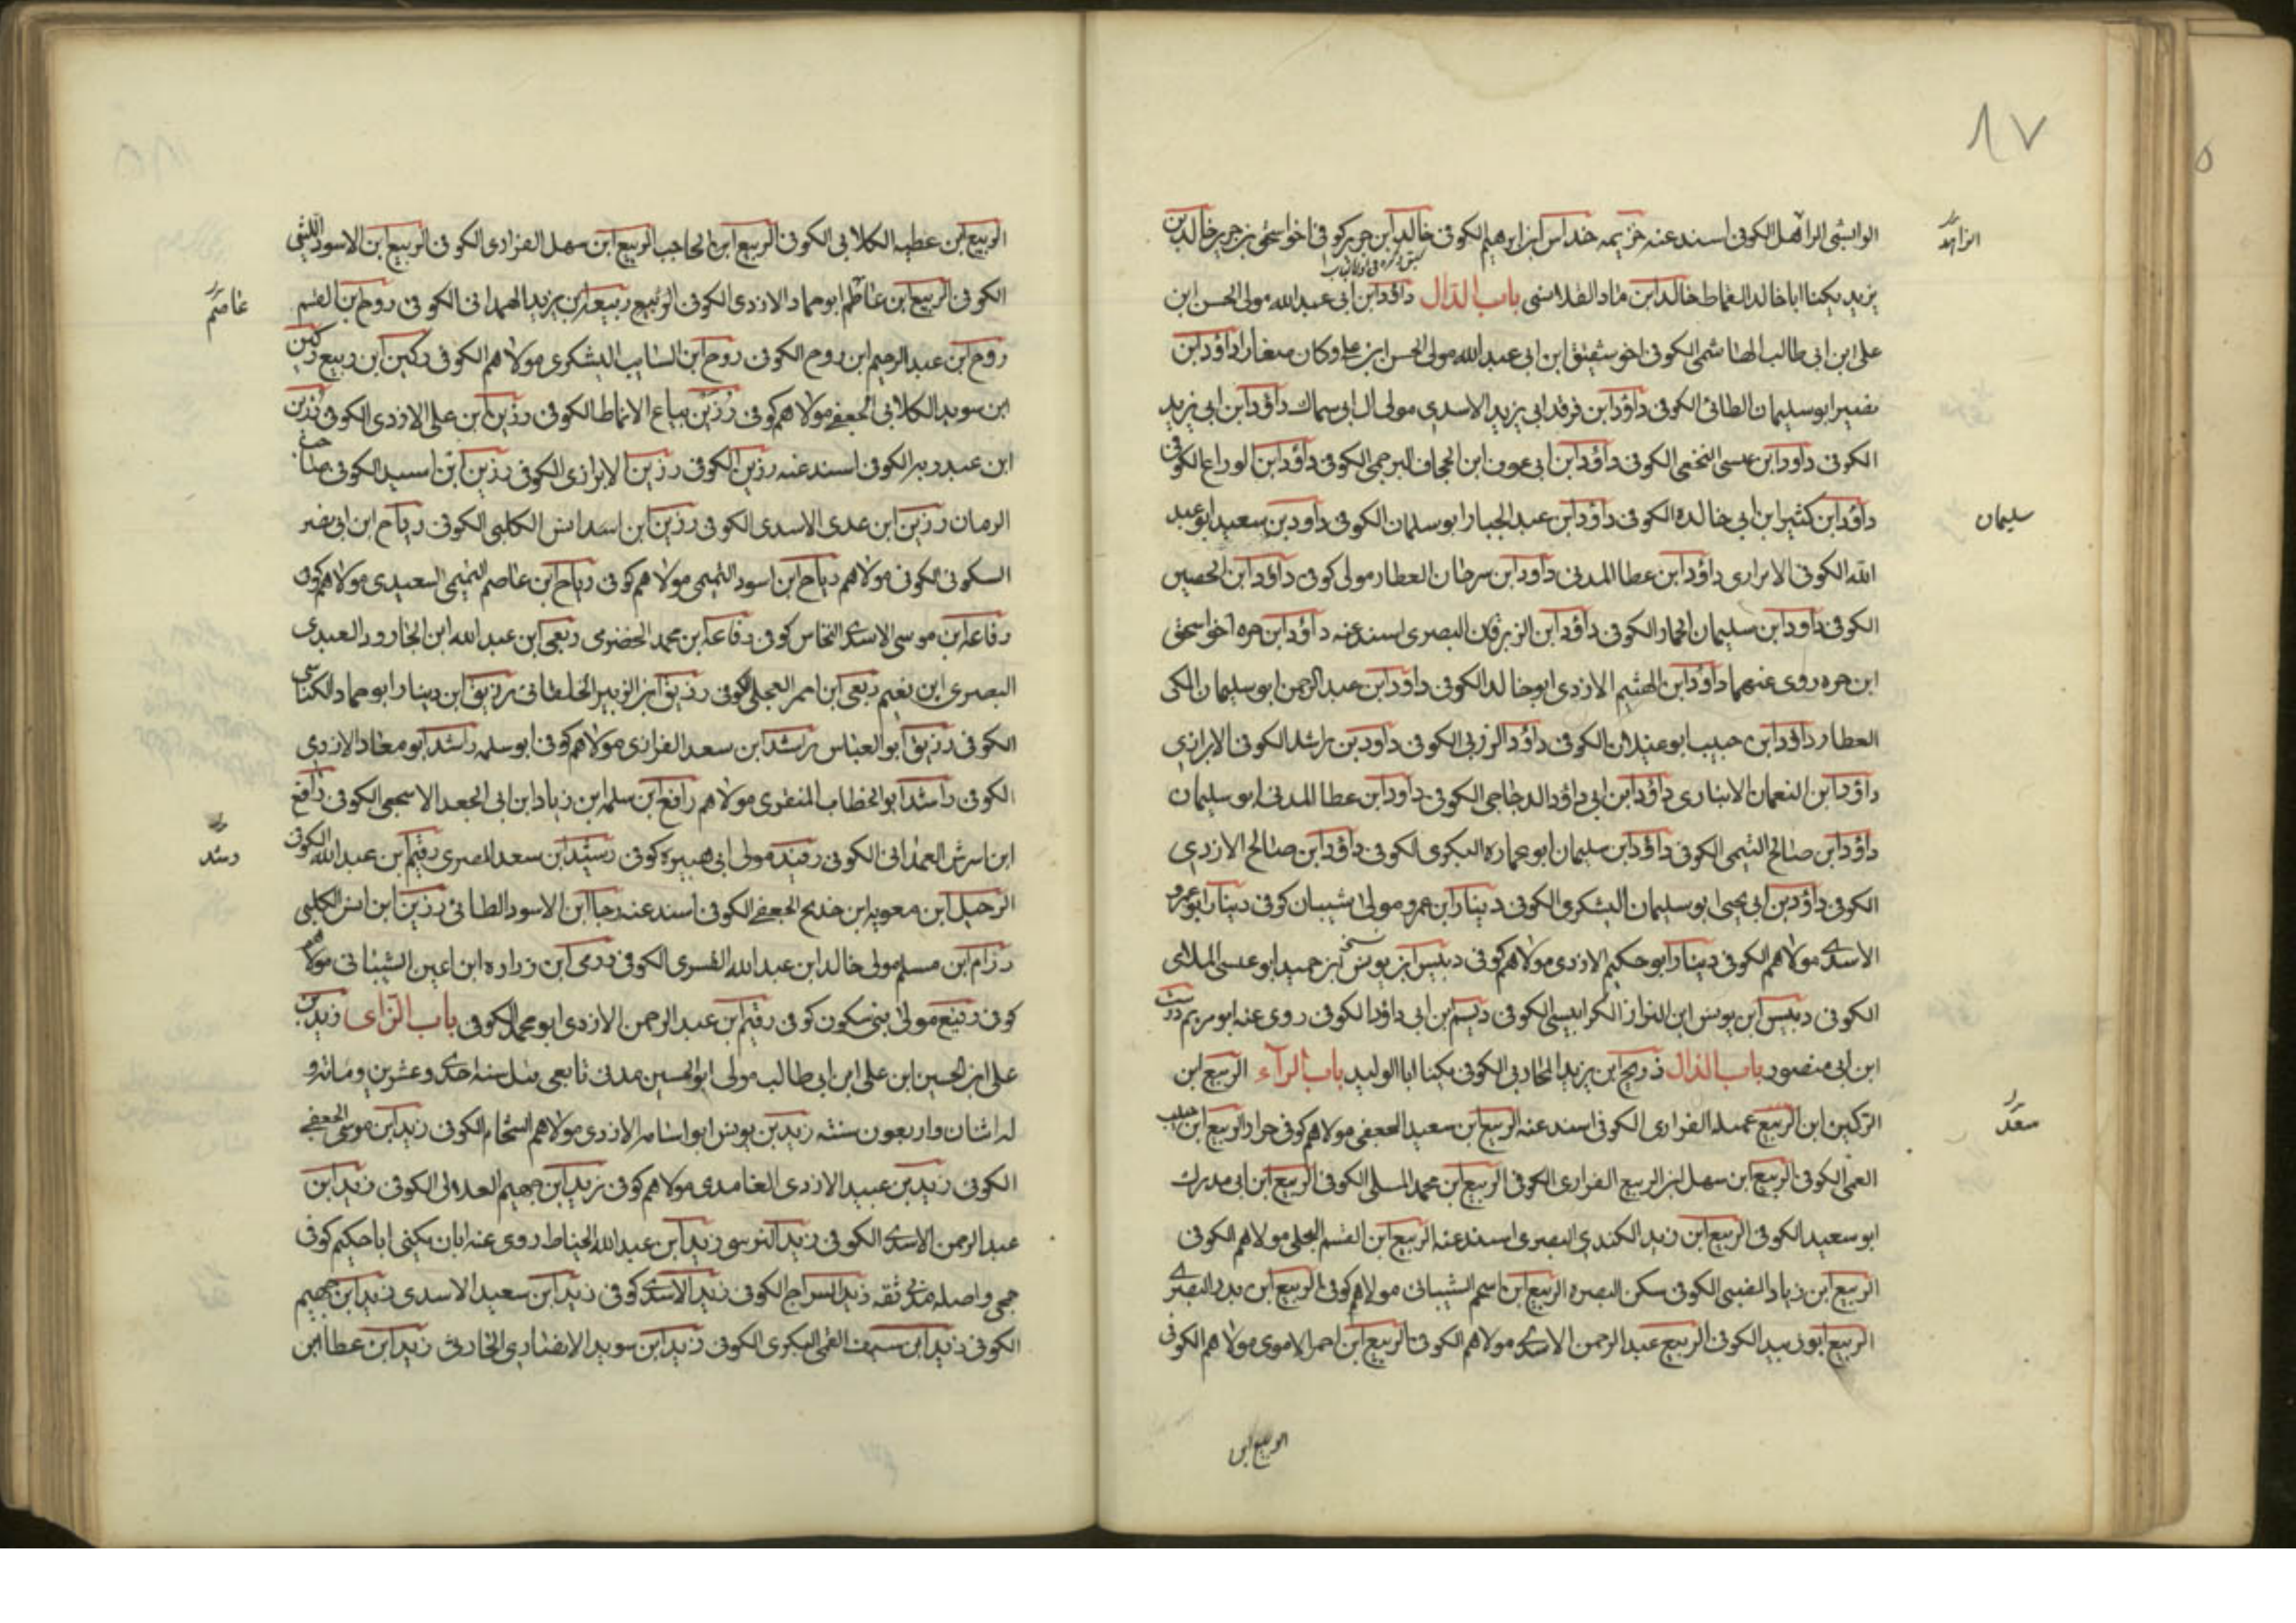 ٨٧
الوابشى الزاهد الكوفى اسند عنه خزيمه خداس ابن ابرهيم الكوفى خالد ابن جرير كوفى اخو اسحق بن جرير خالد بن
الزاهد
يزيد يكنا ابا خالد القماط خالد ابن ماد القلانسى باب الدال داؤد ابن ابى عبد الله مولى الحسن ابن
على ابن ابى طالب الهاشمى الكوفى اخو شقيق ابن ابى عبد الله مولى الحسن ابن على وكان داؤد ابن
نصير ابو سليمان الطائى الكوفى داؤد ابن فرقد ابى يزيد الاسدى مولى ال ابى سماك داؤد ابن ابى يزيد
الكوفى داود ابن عيسى النخعى الكوفى داؤد ابن ابى عوف ابن الجحاف البرجمى الكوفى داؤد ابن الوراع الكوفى
داؤد ابن كثير ابن ابى خالده الكوفى داؤد ابن عبد الجبار ابو سلمان الكوفى داود بن سعيد ابو عبد
سليمان
الله الكوفى الابزارى داؤد ابن عطا المدنى داود ابن سرحان العطار مولى كوفى داؤد ابن الحصين
الكوفى داود ابن سليمان الحمار الكوفى داؤد ابن الزبرقان البصرى اسند عنه داؤد ابن حره اخو اسحق
ابن حره روى عنهما داؤد ابن الهثيم الازدى ابو خالد الكوفى داؤد ابن عبد الرحمن ابو سليمان المكى
العطار داؤد ابن حبيب ابو عيدان الكوفى داؤد الرزنى الكوفى داود بن راشد الكوفى الابزارى
داؤد ابن النعمان الانبارى داؤد ابن ابى داؤد الدجاجى الكوفى داود ابن عطا المدنى ابو سليمان
داؤد ابن صالح التيمى الكوفى داؤد ابن سليمان ابو عماره البكرى الكوفى داؤد ابن صالح الازدى
الكوفى داؤد بن ابى يحيى ابو سليمان اليشكرى الكوفى دينار ابن عمرو مولى شيبان كوفى دينار ابو عمرو
الاسدى مولاهم الكوفى دينار ابو حكيم الازدى مولاهم كوفى دبيس ابن يونس ابن حميد ابو عيسى الملاى
الكوفى دبيس ابن يونس ابن البزاز الكرابيسى الكوفى ديسم ابن ابى داؤد الكوفى روى عنه ابو مريم درست
ابن ابى منصور باب الذال ذريح ابن يزيد المحاربى الكوفى يكنا ابا الوليد باب الرآء الربيع ابن
الركين ابن الربيع عميله الفزارى الكوفى اسند عنه الربيع ابن سعيد الجعفى مولاهم كوفى الربيع ابن حبيب
سعد
العمى الكوفى الربيع ابن سهل ابن الربيع الفزارى الكوفى الربيع ابن محمد المسلى الكوفى الربيع ابن ابى مدرك
ابو سعيد الكوفى الربيع ابن زيد الكندى البصرى اسند عنه الربيع ابن القسم البجلى مولاهم الكوفى
الربيع ابن زياد الضبى الكوفى سكن البصره الربيع ابن عاصم الشيبانى مولاهم كوفى الربيع ابن بدر البصرى
الربيع ابو زبيد الكوفى الربيع عبد الرحمن الاسدى مولاهم الكوفى الربيع ابن احمر الاموى مولاهم الكوفى
الربيع ابن
الربيع ابن عطيه الكلابى الكوفى الربيع ابن الحاجب الربيع ابن سهل الفزارى الكوفى الربيع ابن الاسود الليثى
الكوفى الربيع ابن عاصم ابو حماد الازدى الكوفى الربيع ربيعه ابن يزيد الهمدانى الكوفى روح ابن القسم
عاصم
روح ابن عبد الرحيم ابن روح الكوفى روح ابن السايب اليشكرى مولاهم الكوفى ركين ابن ربيع ركين
ابن سويد الكلابى الجعفى مولاهم كوفى رزين بياع الانماط الكوفى رزين ابن على الازدى الكوفى رزين
ابن عبد ربه الكوفى اسند عنه رزين الكوفى رزين الابزارى الكوفى رزين ابن اسيد الكوفى صاحب
الرمان رزين ابن عدى الاسدى الكوفى رزين ابن انس الكلبى الكوفى رياح ابن ابى نصر
السكونى الكوفى مولاهم رياح ابن اسود التميمى مولاهم كوفى رياح ابن عاصم التميمى السعيدى مولاهم كوفى
رفاعه ابن موسى الاسدى النخاس كوفى رفاعه ابن محمد الحضرمى ربعى ابن عبد الله ابن الجارود العبدى
البصرى ابن نعيم ربعى ابن احمر العجلى الكوفى رزيق ابن الزبير الخلقانى رزيق ابن دينار ابو حماد الكناسى
الكوفى رزيق ابو العباس راشد ابن سعد الفزارى مولاهم كوفى ابو سلمه راشد ابو معاد الازدى
الكوفى راشد ابو الخطاب المنقرى مولاهم رافع ابن سلمه ابن زياد ابن ابى الجعد الاشجعى الكوفى رافع
ابن اشرش الهمدانى الكوفى رفيد مولى ابى هبيره كوفى رشيد ابن سعد المصرى رقيم ابن عبد الله الكوفى
رشد
الرحيل ابن معويه ابن خديج الجعفى الكوفى اسند عنه رجا ابن الاسود الطائى رزين ابن انس الكلبى
رزام ابن مسلم مولى خالد ابن عبد الله القسرى الكوفى رومى ابن زراره ابن اعين الشيبانى مولاهم
كوفى رفيع مولى بنى سكون كوفى رقيم ابن عبد الرحمن الازدى ابو محمد الكوفى باب الزاى زيد بن
على ابن الحسين ابن على ابن ابى طالب مولى ابو الحسين مدنى تابعى قتل سنه احدى وعشرين ومائه و
له اثنان واربعون سنه زيد بن يونس ابو اسامه الازدى مولاهم الشحام الكوفى زيد ابن موسى الجعفى
الكوفى زيد بن عبيد الازدى الغامدى مولاهم كوفى زيد ابن جهيم الكوفى زيد ابن
عبد الرحمن الاسدى الكوفى زيد النرسى زيد ابن عبد الله الحناط روى عنه ابان يكنى ابا حكيم كوفى
جمحى واصله مدنى ثقه زيد السراج الكوفى زيد الاسدى كوفى زيد ابن سعيد الاسدى زيد ابن جهيم
الكوفى زيد ابن سيف القمى البكرى الكوفى زيد ابن سويد الانصارى الحارثى زيد ابن عطا ابن